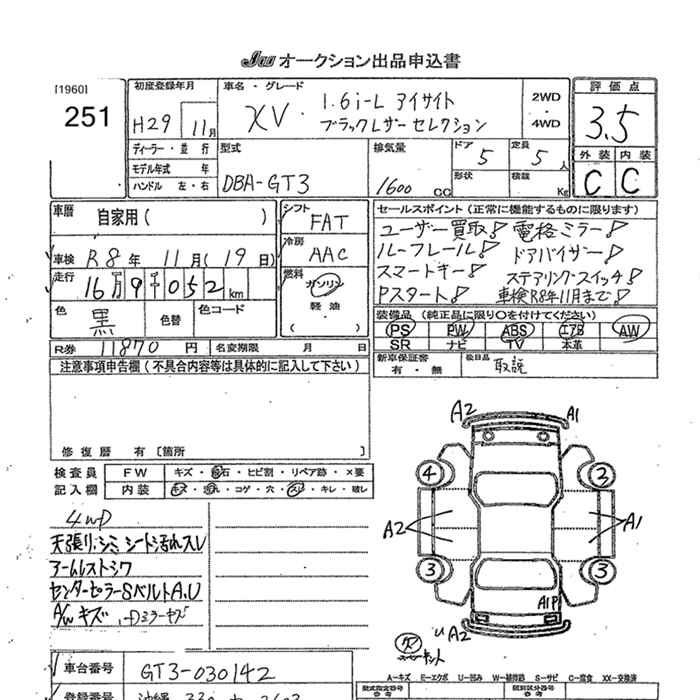 JU オークション出品申込書
[1960]
251
初度登録年月
H29 11月
車名・グレード
XV 1.6i-L アイサイト
ブラックレザーセレクション
2WD
・
4WD
評価点
3.5
外装 内装
C C
ディーラー・並行
モデル年式 年
ハンドル 左・右
型式
DBA-GT3
排気量
1600 CC
ドア 5
定員 5 人
形状
積載 Kg
車歴 自家用( )
車検 R8年 11月(19日)
走行 16万9千052km
色 黒
色替
色コード
シフト FAT
冷房 AAC
燃料 ガソリン
軽油
( )
セールスポイント(正常に機能するものに限ります)
ユーザー買取! 電格ミラー!
ルーフレール! ドアバイザー!
スマートキー! ステアリングスイッチ!
Pスタート! 車検R8年11月まで!
装備品(純正品に限り○を付けてください)
PS PW ABS エアB AW
SR ナビ TV 本革
新車保証書
有・無
後日品 取説
R券 11870円 名変期限 月 日
注意事項申告欄(不具合内容等は具体的に記入して下さい)
修復歴 有[箇所 ]
検査員
記入欄
FW キズ・飛石・ヒビ割・リペア跡・×要
内装 キズ・汚れ・コゲ・穴・スレ・キレ・破レ
4WD
天張り・シミ シート汚れスレ
アームレストシワ
センターピラーSベルトA,U
A/Wキズ
ミラーキズ
A2 A1
4 3
A2 A1
3 3
A1P
A2
A-キズ E-エクボ U-凹み W-補修跡 S-サビ C-腐食 XX-交換済
車台番号 GT3-030142
型式指定番号
類別区分番号
登録番号 沖縄 330